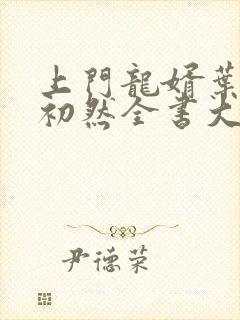 上門龍婿葉
初然全書大
尹德荣